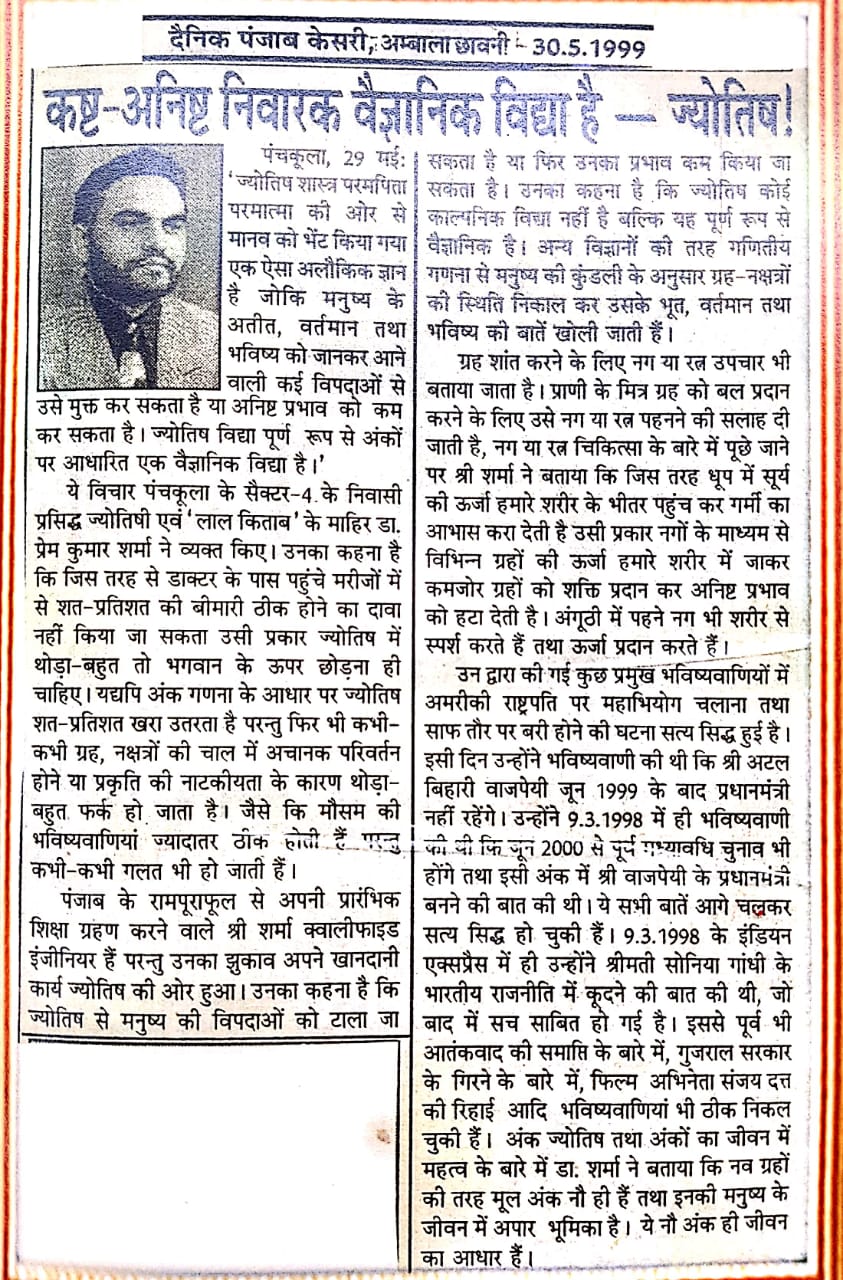 दैनिक पंजाब केसरी, अम्बाला छावनी - 30.5.1999
कष्ट-अनिष्ट निवारक वैज्ञानिक विद्या है — ज्योतिष!
पंचकूला, 29 मई:
'ज्योतिष शास्त्र परमपिता
परमात्मा की ओर से
मानव को भेंट किया गया
एक ऐसा अलौकिक ज्ञान
है जोकि मनुष्य के
अतीत, वर्तमान तथा
भविष्य को जानकर आने
वाली कई विपदाओं से
उसे मुक्त कर सकता है या अनिष्ट प्रभाव को कम
कर सकता है। ज्योतिष विद्या पूर्ण रूप से अंकों
पर आधारित एक वैज्ञानिक विद्या है।'
ये विचार पंचकूला के सैक्टर-4 के निवासी
प्रसिद्ध ज्योतिषी एवं 'लाल किताब' के माहिर डा.
प्रेम कुमार शर्मा ने व्यक्त किए। उनका कहना है
कि जिस तरह से डाक्टर के पास पहुंचे मरीजों में
से शत-प्रतिशत की बीमारी ठीक होने का दावा
नहीं किया जा सकता उसी प्रकार ज्योतिष में
थोड़ा-बहुत तो भगवान के ऊपर छोड़ना ही
चाहिए। यद्यपि अंक गणना के आधार पर ज्योतिष
शत-प्रतिशत खरा उतरता है परन्तु फिर भी कभी-
कभी ग्रह, नक्षत्रों की चाल में अचानक परिवर्तन
होने या प्रकृति की नाटकीयता के कारण थोड़ा-
बहुत फर्क हो जाता है। जैसे कि मौसम की
भविष्यवाणियां ज्यादातर ठीक होती हैं परन्तु
कभी-कभी गलत भी हो जाती हैं।
पंजाब के रामपूराफूल से अपनी प्रारंभिक
शिक्षा ग्रहण करने वाले श्री शर्मा क्वालीफाइड
इंजीनियर हैं परन्तु उनका झुकाव अपने खानदानी
कार्य ज्योतिष की ओर हुआ। उनका कहना है कि
ज्योतिष से मनुष्य की विपदाओं को टाला जा
सकता है या फिर उनका प्रभाव कम किया जा
सकता है। उनका कहना है कि ज्योतिष कोई
काल्पनिक विद्या नहीं है बल्कि यह पूर्ण रूप से
वैज्ञानिक है। अन्य विज्ञानों की तरह गणितीय
गणना से मनुष्य की कुंडली के अनुसार ग्रह-नक्षत्रों
की स्थिति निकाल कर उसके भूत, वर्तमान तथा
भविष्य की बातें खोली जाती हैं।
ग्रह शांत करने के लिए नग या रत्न उपचार भी
बताया जाता है। प्राणी के मित्र ग्रह को बल प्रदान
करने के लिए उसे नग या रत्न पहनने की सलाह दी
जाती है, नग या रत्न चिकित्सा के बारे में पूछे जाने
पर श्री शर्मा ने बताया कि जिस तरह धूप में सूर्य
की ऊर्जा हमारे शरीर के भीतर पहुंच कर गर्मी का
आभास करा देती है उसी प्रकार नगों के माध्यम से
विभिन्न ग्रहों की ऊर्जा हमारे शरीर में जाकर
कमजोर ग्रहों को शक्ति प्रदान कर अनिष्ट प्रभाव
को हटा देती है। अंगूठी में पहने नग भी शरीर से
स्पर्श करते हैं तथा ऊर्जा प्रदान करते हैं।
उन द्वारा की गई कुछ प्रमुख भविष्यवाणियों में
अमरीकी राष्ट्रपति पर महाभियोग चलाना तथा
साफ तौर पर बरी होने की घटना सत्य सिद्ध हुई है।
इसी दिन उन्होंने भविष्यवाणी की थी कि श्री अटल
बिहारी वाजपेयी जून 1999 के बाद प्रधानमंत्री
नहीं रहेंगे। उन्होंने 9.3.1998 में ही भविष्यवाणी
की थी कि जून 2000 से पूर्व मध्यावधि चुनाव भी
होंगे तथा इसी अंक में श्री वाजपेयी के प्रधानमंत्री
बनने की बात की थी। ये सभी बातें आगे चलकर
सत्य सिद्ध हो चुकी हैं। 9.3.1998 के इंडियन
एक्सप्रैस में ही उन्होंने श्रीमती सोनिया गांधी के
भारतीय राजनीति में कूदने की बात की थी, जो
बाद में सच साबित हो गई है। इससे पूर्व भी
आतंकवाद की समाप्ति के बारे में, गुजराल सरकार
के गिरने के बारे में, फिल्म अभिनेता संजय दत्त
की रिहाई आदि भविष्यवाणियां भी ठीक निकल
चुकी हैं। अंक ज्योतिष तथा अंकों का जीवन में
महत्व के बारे में डा. शर्मा ने बताया कि नव ग्रहों
की तरह मूल अंक नौ ही हैं तथा इनकी मनुष्य के
जीवन में अपार भूमिका है। ये नौ अंक ही जीवन
का आधार हैं।